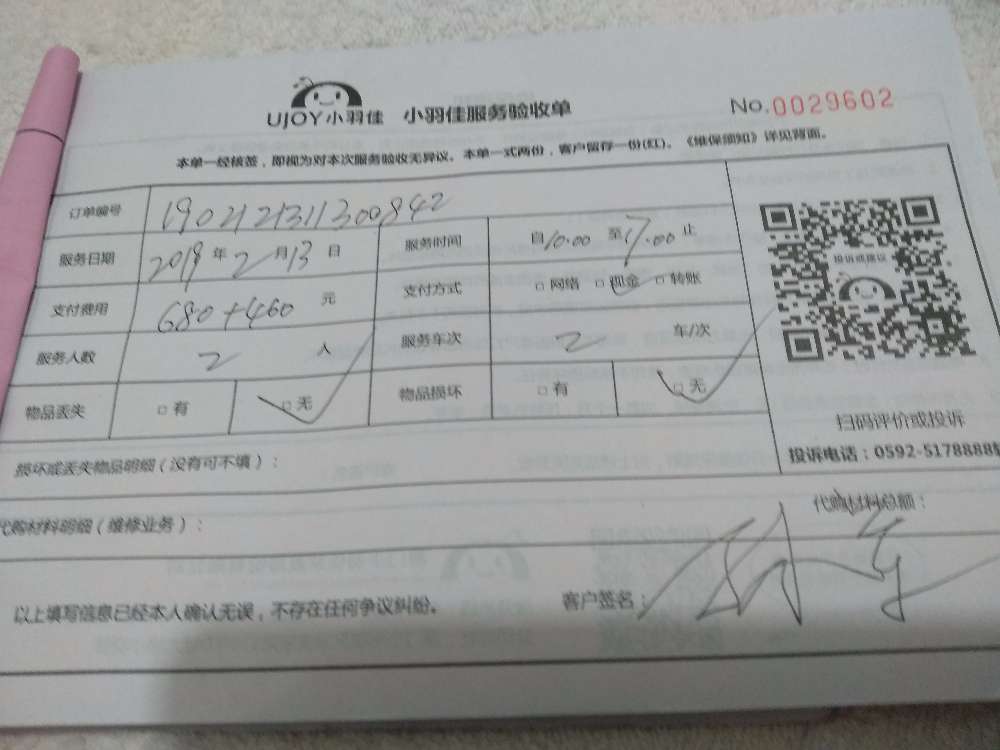 UJOY小羽佳 小羽佳服务验收单 No.0029602
本单一经核签，即视为对本次服务验收无异议。本单一式两份，客户留存一份(红)。《维保须知》详见背面。
订单编号 1902121311300842
服务日期 2019年2月13日 服务时间 自10.00至17.00止
支付费用 680+460 元 支付方式 □网络 □现金 □转账
服务人数 2 人 服务车次 2 车/次
物品丢失 □有 □无 物品损坏 □有 □无
投诉或建议
扫码评价或投诉
投诉电话：0592-5178888
损坏或丢失物品明细（没有可不填）：
代购材料明细（维修业务）： 代购材料总额：
以上填写信息已经本人确认无误，不存在任何争议纠纷。 客户签名：